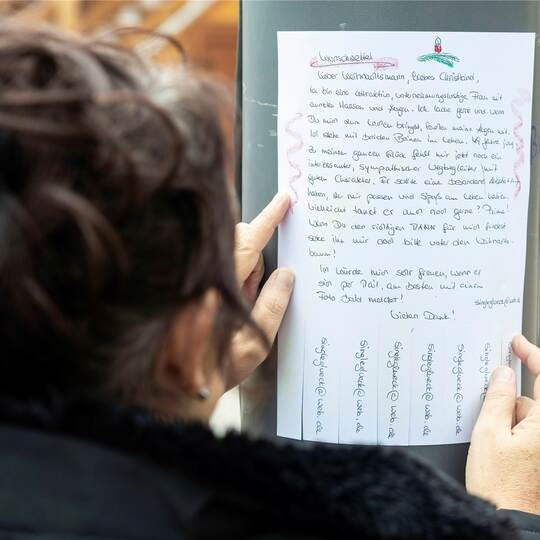 Wunschzettel
Lieber Weihnachtsmann, liebes Christkind,
Ich bin eine attraktive, unternehmungslustige Frau mit
dunklen Haaren und Augen. Ich lache gern und wenn
Du mich zum Lachen bringst, funkeln meine Augen mit.
Ich stehe mit beiden Beinen im Leben, 49 Jahre jung.
Zu meinem ganzen Glück fehlt mir jetzt noch ein
interessanter, sympathischer Wegbegleiter (mit
guten Charakter. Er sollte eine besondere
haben, zu mir passen und Spaß am Leben haben.
Vielleicht tanzt er auch noch gerne? Prima!
Wenn Du den richtigen MANN für mich findest
setze ihn mir doch bitte unter den Weihnachts-
baum!
Ich würde mich sehr freuen, wenn er
sich per Mail, am besten mit einem
Foto bald meldet!
Vielen Dank!
singleglueck@web.de
singleglueck@web.de
singleglueck@web.de
singleglueck@web.de
singleglueck@web.de
singleglueck@web.de